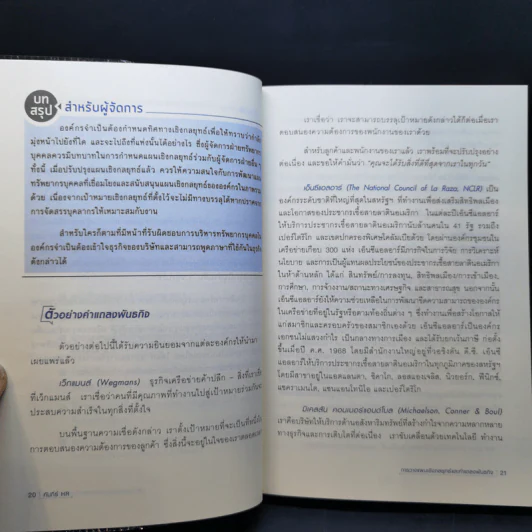 บท
สรุป
สำหรับผู้จัดการ
องค์กรจำเป็นต้องกำหนดทิศทางเชิงกลยุทธ์เพื่อให้ทราบว่ากำลัง
มุ่งหน้าไปยังที่ใด และจะไปถึงที่แห่งนั้นได้อย่างไร ซึ่งผู้จัดการฝ่ายทรัพยากร
บุคคลควรมีบทบาทในการกำหนดแผนเชิงกลยุทธ์ร่วมกับผู้จัดการฝ่ายอื่น ๆ
ทั้งนี้ เมื่อปรับปรุงแผนเชิงกลยุทธ์แล้ว ควรให้ความสนใจกับการพัฒนา
ทรัพยากรบุคคลที่เชื่อมโยงและสนับสนุนแผนเชิงกลยุทธ์ขององค์กรในภาพรวม
ด้วย เนื่องจากเป้าหมายเชิงกลยุทธ์ที่ตั้งไว้จะไม่มีทางบรรลุได้หากปราศจาก
การจัดสรรบุคลากรให้เหมาะสมกับงาน
สำหรับใครก็ตามที่มีหน้าที่รับผิดชอบการบริหารทรัพยากรบุคคลใน
องค์กรจำเป็นต้องเข้าใจธุรกิจของบริษัทและสามารถพูดภาษาที่ใช้กันในธุรกิจ
ดังกล่าวได้
ตัวอย่างคำแถลงพันธกิจ
ตัวอย่างต่อไปนี้ได้รับความยินยอมจากแต่ละองค์กรให้นำมา
เผยแพร่แล้ว
เว็กแมนส์ (Wegmans) ธุรกิจเครือข่ายค้าปลีก – สิ่งที่เรา
ที่เว็กแมนส์ เราเชื่อว่าคนที่มีคุณภาพที่ทำงานไปสู่เป้าหมายร่วมกัน
ประสบความสำเร็จในทุกสิ่งที่ตั้งใจ
บนพื้นฐานความเชื่อดังกล่าว เราตั้งเป้าหมายที่จะเป็นที่หนึ่ง
การตอบสนองความต้องการของลูกค้า ซึ่งสิ่งนี้จะอยู่ในใจของเราตลอด
20 | คัมภีร์ HR
เราเชื่อว่า เราจะสามารถบรรลุเป้าหมายดังกล่าวได้ก็ต่อเมื่อเรา
ตอบสนองความต้องการของพนักงานของเราด้วย
สำหรับลูกค้าและพนักงานของเราแล้ว เราพร้อมที่จะปรับปรุงอย่าง
ต่อเนื่อง และขอให้คำมั่นว่า “คุณจะได้รับสิ่งที่ดีที่สุดจากเราในทุกวัน”
เอ็นซีแอลอาร์ (The National Council of La Raza, NCLR) เป็น
องค์กรระดับชาติที่ใหญ่ที่สุดในสหรัฐฯ ที่ทำงานเพื่อส่งเสริมสิทธิพลเมือง
และโอกาสของประชากรเชื้อสายลาตินอเมริกา ในแต่ละปีเอ็นซีแอลอาร์
ให้บริการประชากรเชื้อสายลาตินอเมริกานับล้านคนใน 41 รัฐ รวมถึง
เปอร์โตริโก และเขตปกครองพิเศษโคลัมเบียด้วย โดยผ่านองค์กรชุมชนใน
เครือข่ายเกือบ 300 แห่ง เอ็นซีแอลอาร์มีภารกิจในการวิจัย การวิเคราะห์
นโยบาย และการเป็นผู้แทนผลประโยชน์ของประชากรเชื้อสายลาตินอเมริกา
ในห้าด้านหลัก ได้แก่ สินทรัพย์/การลงทุน, สิทธิพลเมือง/การเข้าเมือง,
การศึกษา, การจ้างงาน/สถานะทางเศรษฐกิจ และสาธารณสุข นอกจากนั้น
เอ็นซีแอลอาร์ยังให้ความช่วยเหลือในการพัฒนาขีดความสามารถขององค์กร
ในเครือข่ายที่อยู่ในรัฐหรือตามท้องถิ่นต่าง ๆ ซึ่งทำงานเพื่อสร้างโอกาสให้
แก่สมาชิกและครอบครัวของสมาชิกเองด้วย เอ็นซีแอลอาร์เป็นองค์กร
เอกชนไม่แสวงกำไร เป็นกลางทางการเมือง และได้รับยกเว้นภาษี ก่อตั้ง
ขึ้นเมื่อปี ค.ศ. 1968 โดยมีสำนักงานใหญ่อยู่ที่วอชิงตัน ดี.ซี. เอ็นซี
แอลอาร์ให้บริการประชากรเชื้อสายลาตินอเมริกาในทุกภูมิภาคของสหรัฐฯ
โดยมีสาขาอยู่ในแอตแลนตา, ชิคาโก, ลอสแอนเจลิส, นิวยอร์ก, ฟีนิกซ์,
แซคราเมนโต, แซนแอนโทนีโอ และเปอร์โตริโก
มิเคลสสัน คอนเนอร์แอนด์โบล (Michaelson, Conner & Boul)
เราคือบริษัทให้บริการด้านอสังหาริมทรัพย์ที่สร้างกำไรจากความหลากหลาย
ทางธุรกิจและการเติบโตที่ต่อเนื่อง เราขับเคลื่อนด้วยเทคโนโลยี ทำงาน
21